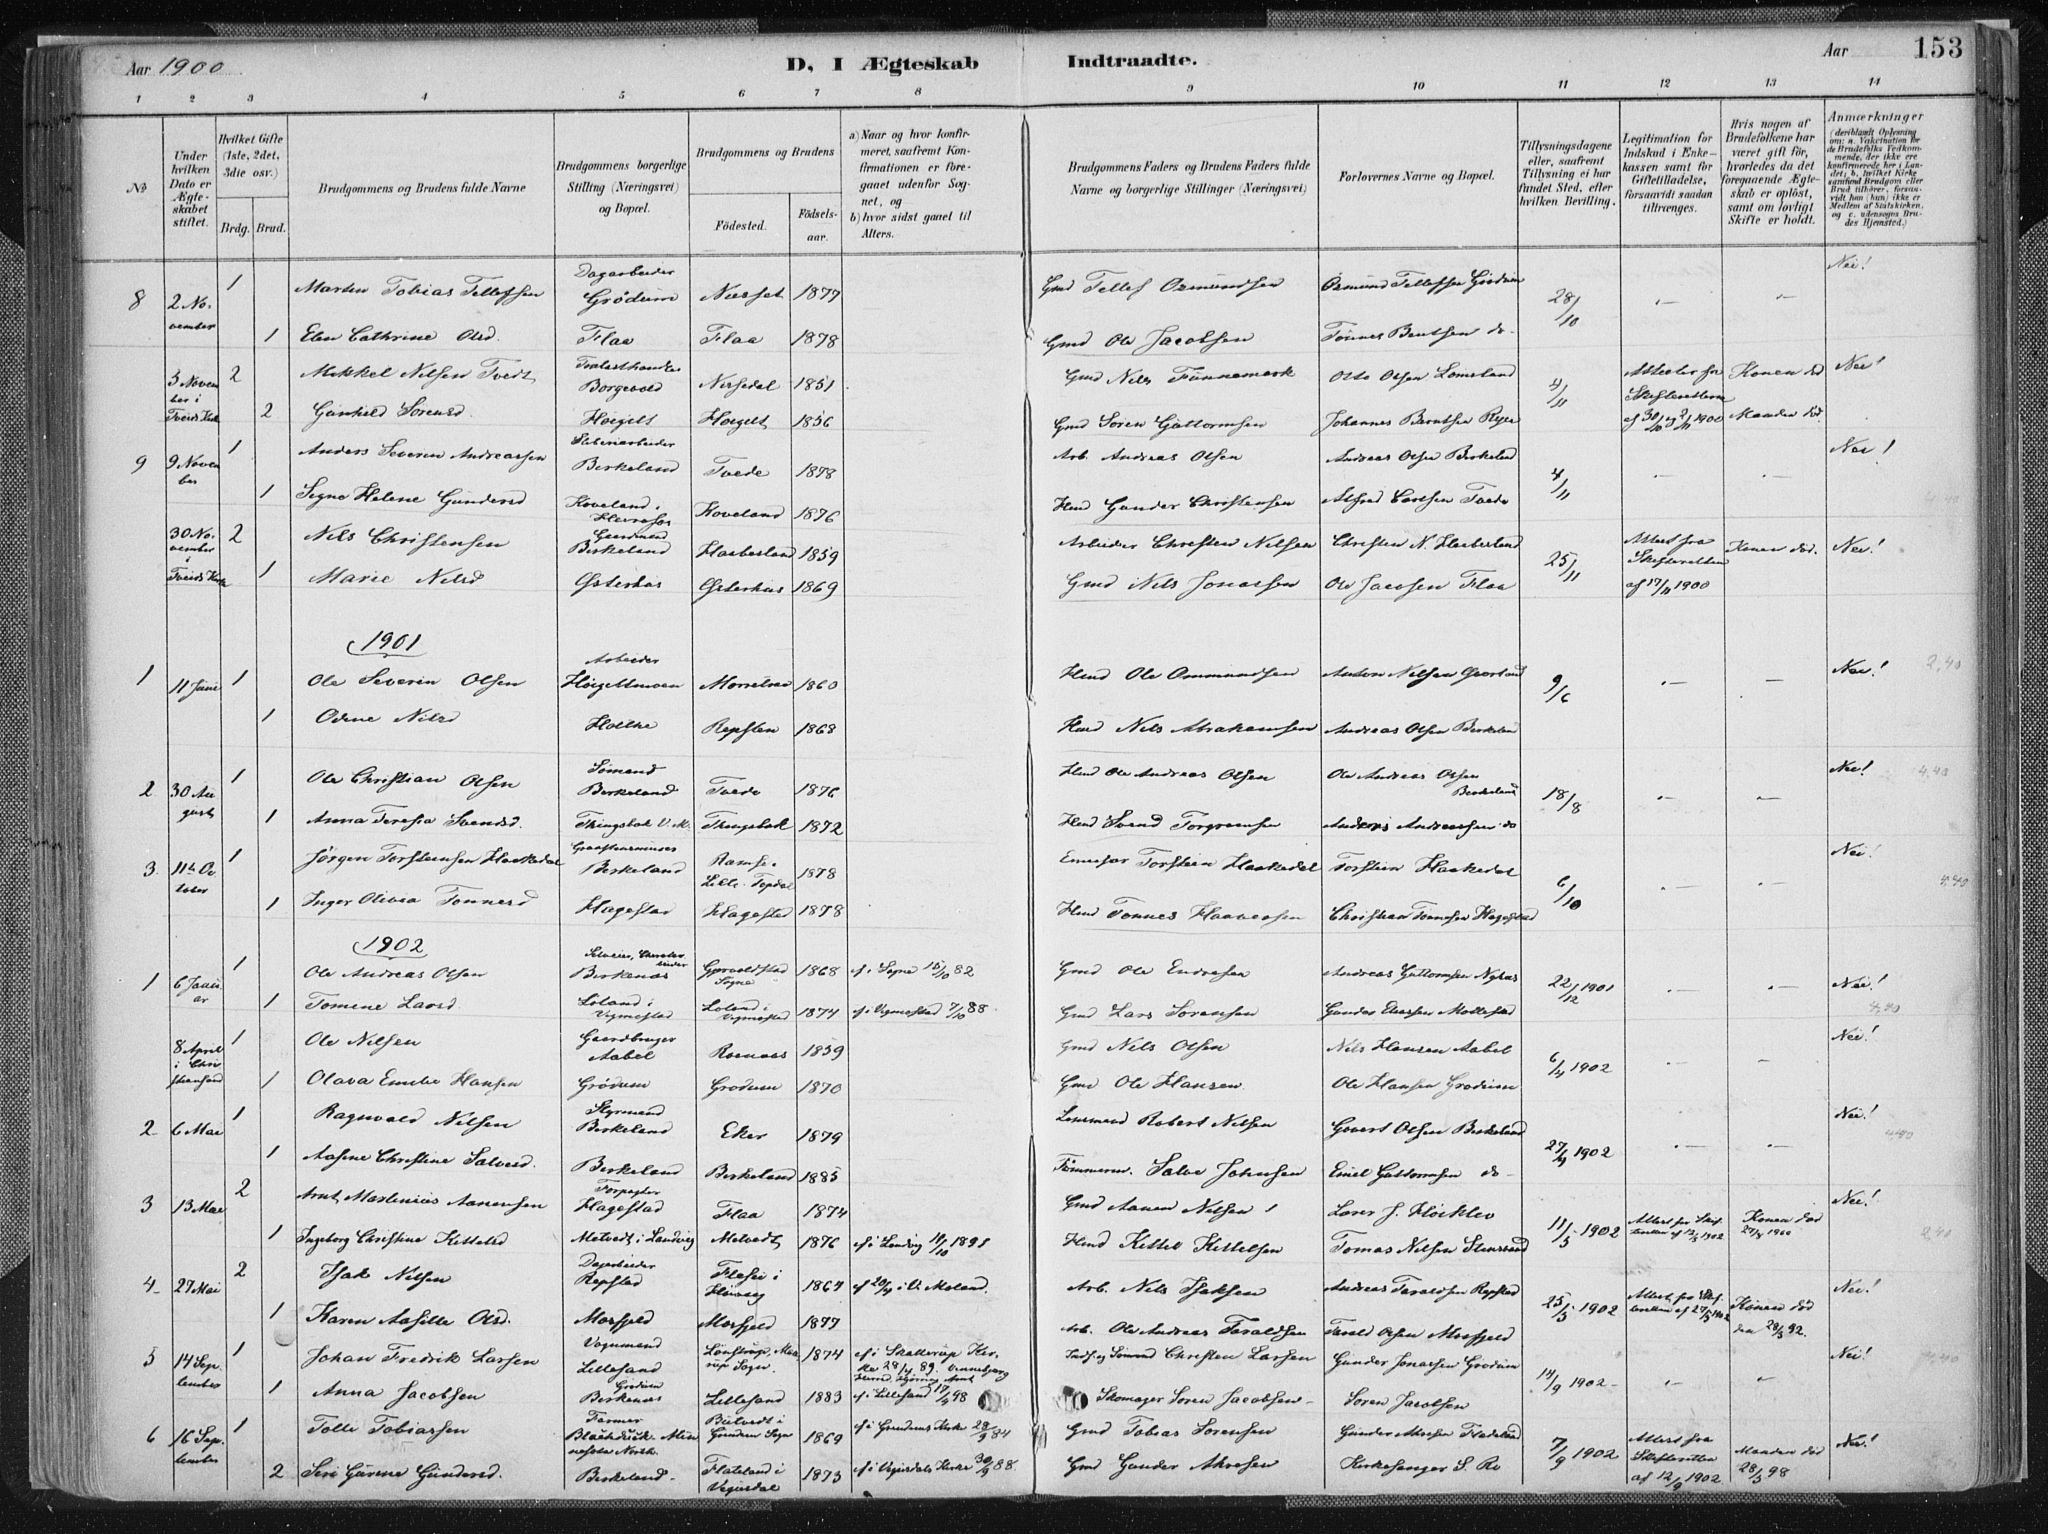 Aar 1900
D, I Ægteskab Indtraadte.
Aar
153
1 2 3 4 5 6 7 8 9 10 11 12 13 14
No
Under hvilken Dato er Ægteskabet stiftet.
Hvilket Gifte (1ste, 2det, 3die osv.)
Brdg. Brud.
Brudgommens og Brudens fulde Navne
Brudgommens borgerlige Stilling (Næringsvei) og Bopæl.
Brudgommens og Brudens
Fødested.
Fødselsaar.
a) Naar og hvor konfirmeret, saafremt Konfirmationen er foregaaet udenfor Sognet, og
b) hvor sidst gaaet til Alters.
Brudgommens Faders og Brudens Faders fulde Navne og borgerlige Stillinger (Næringsvei)
Forlovernes Navne og Bopæl.
Tillysningsdagene eller, saafremt Tillysning ei har fundet Sted, efter hvilken Bevilling.
Legitimation for Indskud i Enkekassen samt for Giftetilladelse, forsaavidt saadan tiltrænges.
Hvis nogen af Brudefolkene har været gift før, hvorledes da det foregaaende Ægteskab er opløst, samt om lovligt Skifte er holdt.
Anmærkninger (deriblandt Oplysning om: a. Vakcination for de Brudefolks Vedkommende, der ikke ere konfirmerede her i Landet; b. hvilket Kirkesamfund Brudgom eller Brud tilhører, forsaavidt han (hun) ikke er Medlem af Statskirken, og c. udensogns Brudes Hjemsted.)
8 2 November 1 Marten Tobias Tellefsen Dagarbeider Grødum Næsset 1877 Gmd Tellef Osmundsen Osmund Tellefsen Grødum 28/10 Nei!
1 Elen Cathrine Olsd. Flaa Flaa 1878 Gmd Ole Jacobsen Tønnes Bentsen do
5 November i Tveids Kirke 2 Mikkel Nilsen Tvedt Trælasthandler Borgevold Nissedal 1851 Gmd Nils Funnemark Otto Olsen Lomsland 4/11 Attester fra Skifteretterne af 30/10 og 2/11 1900 Konen død Nei!
2 Gunhild Sørensd. Høigelt Høigelt 1856 Gmd Søren Guttormsen Johannes Berntsen Manden død
9 9 November 1 Anders Severin Andreassen Birkeland Tvede 1878 Arb. Andreas Olsen Andreas Olsen Birkeland 4/11 Nei!
1 Signe Helene Gundersd Koveland i Herefos Koveland 1876 Hmd Gunder Christensen Alfred Carlsen Tvede
30 November i Tveids Kirke 2 Nils Christensen Gaardmand Birkeland Haaberland 1859 Arbeider Christen Nilsen Christen N. Haaberland 25/11 Attest fra Skifteretten af 17/11 1900 Konen død. Nei!
1 Marie Nilsd Østerhus Østerhus 1869 Gmd Nils Jonassen Ole Jacobsen Flaa
1901
1 11 Juni 1 Ole Severin Olsen Arbeider Høigeltmoen 1860 Hmd Ole Ommundsen Anton Nilsen 9/6 Nei! 2,40
1 Odine Nilsd Holtke Repsten 1868 Hmd Nils Abrahamsen Andreas Olsen Birkeland
2 30 August 1 Ole Christian Olsen Sømand Birkeland Tvede 1876 Hmd Ole Andreas Olsen Ole Andreas Olsen Birkeland 18/8 Nei! 4,40
1 Anna Teresia Svendsd. Thingsbak V.M. Thingsbak 1872 Hmd Svend Torgrimsen Anders Andreassen do
3. 11te October 1 Jørgen Torsteinsen Haakedal Birkeland Ramse i Lille-Topdal 1878 Torstein Haakedal Torstein Haakedal 6/10 Nei! 4,40
1 Inger Olivia Tønnesd Hagestad Hagestad 1878 Hmd Tønnes Haaversen Christian Tønnesen Hagestad
1902
1 6 Januar 1 Ole Andreas Olsen Birkenæs Søgne 1868 cf i Søgne 15/10 82 Gmd Ole Endresen Andreas Guttormsen 22/12 1901 Nei!
1 Tomine Larsd Løland i Vigmostad Løland i Vigmostad 1874 cf i Vigmostad 7/10 88. Gmd Lars Sørensen Gunder Mollestad 4,40
8 April i Christiansand 1 Ole Nilsen Gaardbruger Aabel Rosnæs 1859 Gmd Nils Olsen Nils Hansen Aabel 6/4 1902 Nei!
1 Olava Emilie Hansen Grødum Grødum 1870 Gmd Ole Hansen. Ole Hansen Grødum
2 6 Mai 1 Ragnvald Nilsen Styrmand Birkeland Eker 1879 Lensmand Robert Nilsen Govert Olsen Birkeland 27/4 1902 Nei! 4,40
1 Aasine Christine Salvesd. Birkeland Birkeland 1885 Tømmerm. Salve Johnsen Emil Guttormsen do
3 13 Mai 2 Arnt Martinius Aanensen Forpagter Hagestad Flaa 1874 Gmd Aanen Nilsen Lars J. Høiklev 11/5 1902 Attest fra Skifteretten af 12/5 1902 Konen død Nei!
1 Ingeborg Christine Kittelsd Molvedt i Landvig Molvedt 1876 cf i Landvig 11/10 1891 Hmd Kittel Kittelsen Tomas Nilsen 2,40
4 27 Mai 2 Isak Nilsen Dagarbeider Repstad Flosie i Høivaag 1864 cf 20/4 i V. Moland. Arb. Nils Isaksen Andreas Taraldsen Repstad 25/5 1902 Attest fra Skifteretten af 27/5 1902 Konen død den 28/5 92. Nei!
1 Karen Aasille Olsd. Mosfjeld Mosfjeld 1877 Arb. Ole Andreas Taraldsen Tarald Olsen Mosfjeld
5 14 September 1 Johan Fredrik Larsen Vognmand Lillesand Sogn. 1874 cf i Skallerup Kirke 28/4 89. Christen Larsen Gunder Jonassen Grødum 14/9 1902 Nei! 4,40
1 Anna Jacobsen Grødum Birkenæs Lillesand 1883 cf i Lillesand 17/4 98 Skomager Søren Jacobsen Søren Jacobsen
6 16 September 1 Tolle Tobiassen Farmer Minnesota North Sogn 1869 cf i Kirke 28/9 84 Gmd Tobias Sørensen Gunder Flateland 7/9 1902 Attest fra Skifteretten af 12/9 1902 Manden død 28/3 98 Nei!
2 Siri Gurine Gundersd. Birkeland Flateland i Vegusdal 1873 cf i Vegusdals Kirke 30/9 88. Gmd Gunder Kirkesanger S. Ro